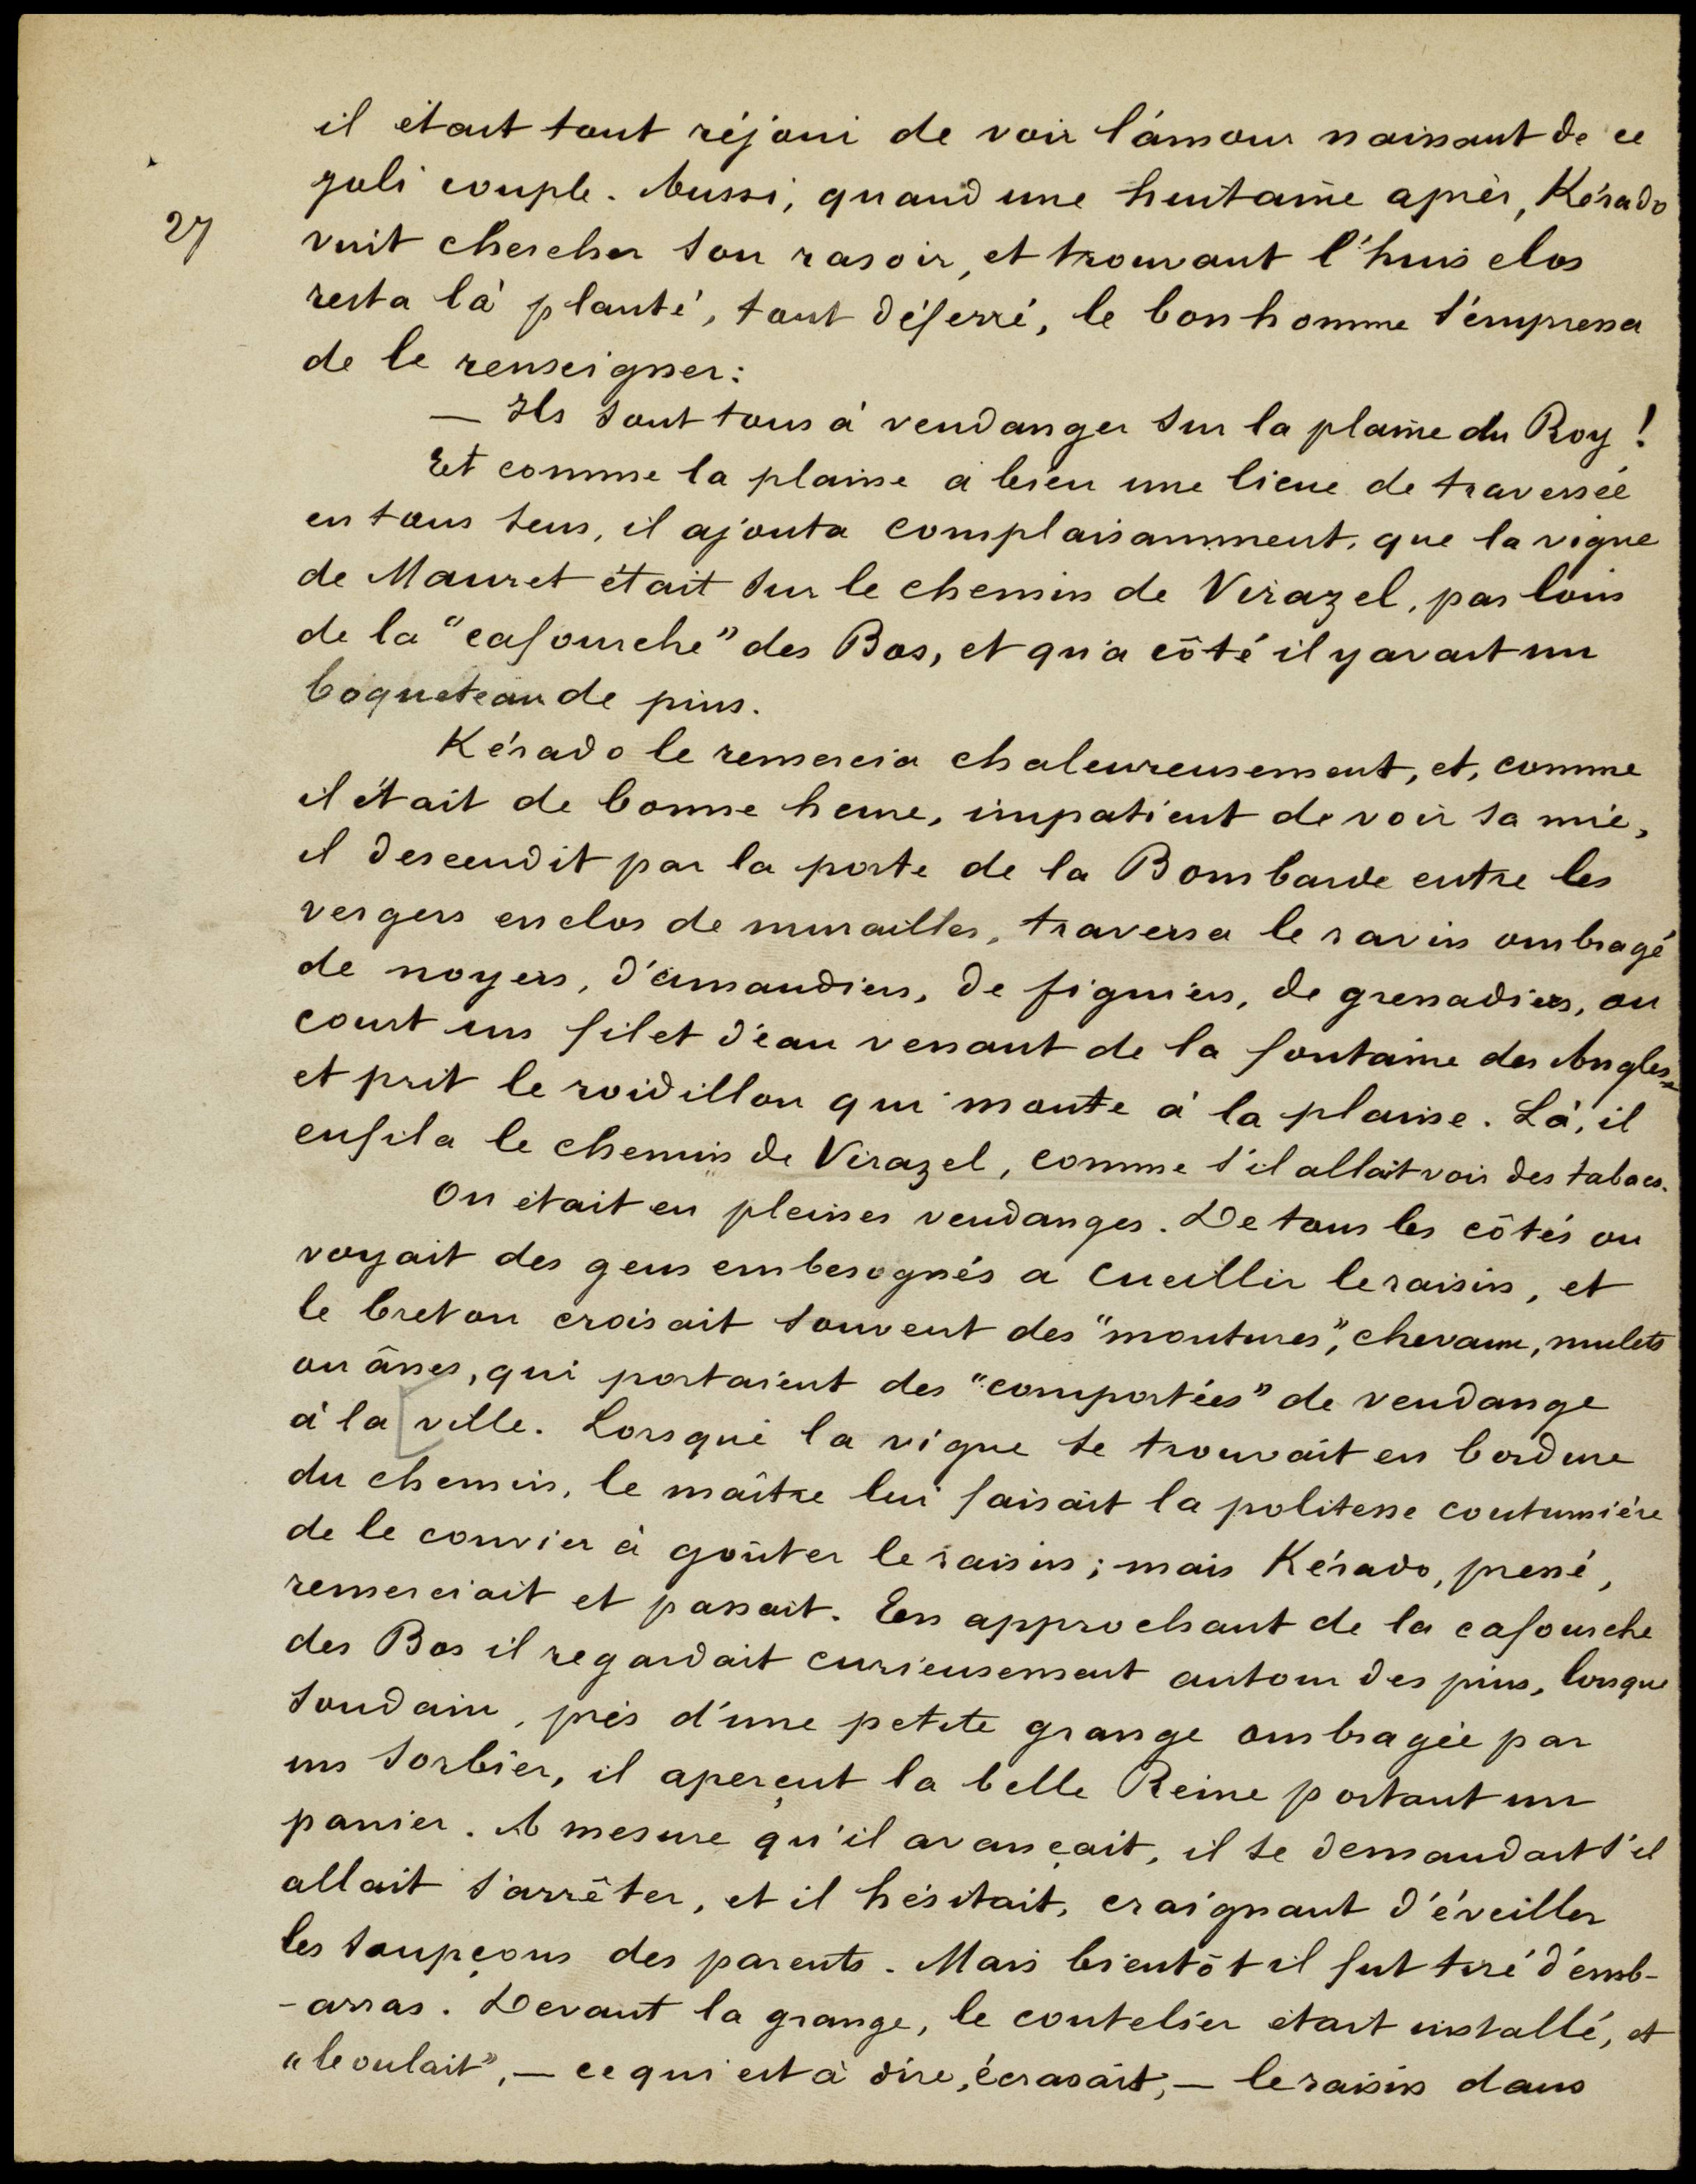 il était tout réjoui de voir l'amour naissant de ce
joli couple. Aussi, quand une huitaine après, Kérado
27
vint chercher son rasoir, et trouvant l'huis clos
resta là planté, tout déferré, le bonhomme s'empressa
de le renseigner:
— Ils sont tous à vendanger sur la plaine du Roy !
Et comme la plaine a bien une lieue de traversée
en tous sens, il ajouta complaisamment, que la vigne
de Mauret était sur le chemin de Virazel, pas loin
de la "cafourche" des Bos, et qu'a côté il y avait un
boqueteau de pins.
Kérado le remercia chaleureusement, et, comme
il était de bonne heure, impatient de voir sa mie,
il descendit par la porte de la Bombarde entre les
vergers enclos de murailles, traversa le ravin ombragé
de noyers, d'amandiers, de figuiers, de grenadiers, ou
court un filet d'eau venant de la fontaine des Angles,
et prit le roidillon qui monte à la plaine. Là, il
enfila le chemin de Virazel, comme s'il allait voir des tabacs.
On était en pleines vendanges. De tous les côtés on
voyait des gens embesognés a cueillir le raisin, et
le breton croisait souvent des "montures", chevaux, mulets
ou ânes, qui portaient des "comportées" de vendange
à la [ville. Lorsque la vigne se trouvait en bordure
du chemin, le maître lui faisait la politesse coutumière
de le convier à goûter le raisin ; mais Kérado, pressé,
remerciait et passait. En approchant de la cafourche
des Bos il regardait curieusement autour des pins, lorsque
soudain, près d'une petite grange ombragée par
un sorbier, il aperçut la belle Reine portant un
panier. A mesure qu'il avançait, il se demandait s'il
allait s'arrêter, et il hésitait, craignant d'éveiller
les soupçons des parents. Mais bientôt il fut tiré d'emb-
-arras. Devant la grange, le coutelier était installé, et
"leoulait", — ce qui est à dire, écrasait, — le raisin dans